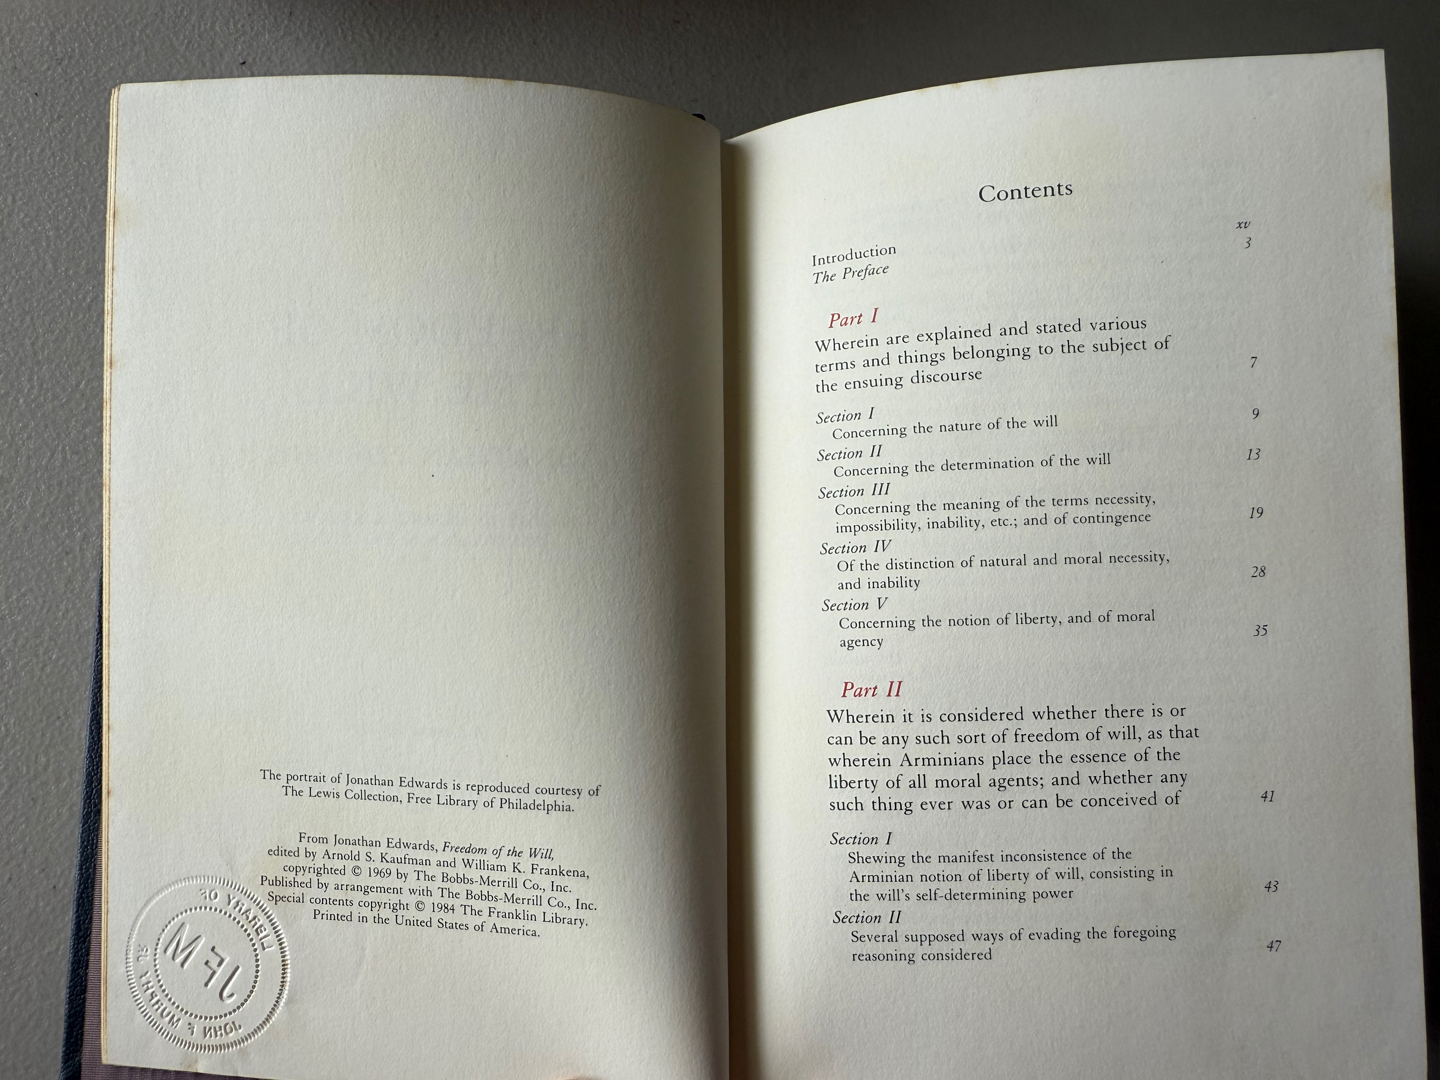 The portrait of Jonathan Edwards is reproduced courtesy of
The Lewis Collection, Free Library of Philadelphia.
From Jonathan Edwards, Freedom of the Will,
edited by Arnold S. Kaufman and William K. Frankena,
copyrighted © 1969 by The Bobbs-Merrill Co., Inc.
Published by arrangement with The Bobbs-Merrill Co., Inc.
Special contents copyright © 1984 The Franklin Library.
Printed in the United States of America.
LIBRARY OF
JFM
JOHN F MURPHY JR.
Contents
Introduction xv
The Preface 3
Part I
Wherein are explained and stated various
terms and things belonging to the subject of
the ensuing discourse 7
Section I
Concerning the nature of the will 9
Section II
Concerning the determination of the will 13
Section III
Concerning the meaning of the terms necessity,
impossibility, inability, etc.; and of contingence 19
Section IV
Of the distinction of natural and moral necessity,
and inability 28
Section V
Concerning the notion of liberty, and of moral
agency 35
Part II
Wherein it is considered whether there is or
can be any such sort of freedom of will, as that
wherein Arminians place the essence of the
liberty of all moral agents; and whether any
such thing ever was or can be conceived of 41
Section I
Shewing the manifest inconsistence of the
Arminian notion of liberty of will, consisting in
the will's self-determining power 43
Section II
Several supposed ways of evading the foregoing
reasoning considered 47